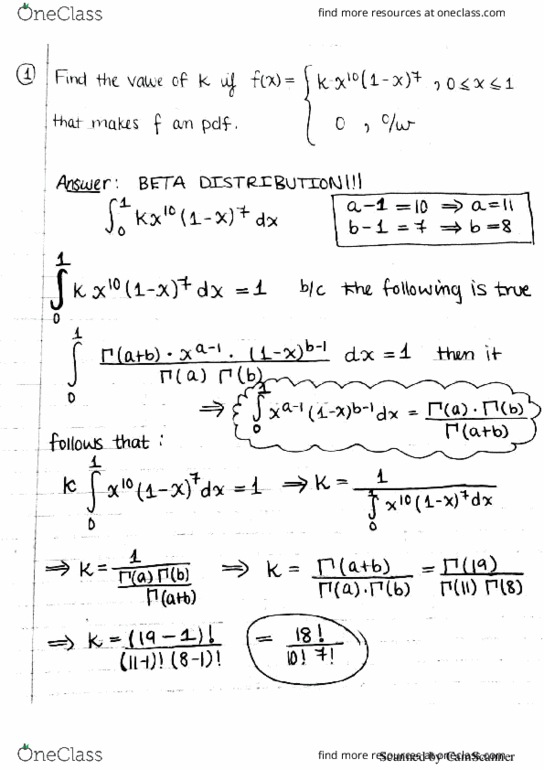 OneClass find more resources at oneclass.com
① Find the value of k if f(x) = { k x¹⁰(1-x)⁷ , 0≤x≤1
that makes f an pdf. 0 , o/w
Answer: BETA DISTRIBUTION!!!
∫₀¹ kx¹⁰(1-x)⁷ dx
a-1 = 10 ⇒ a=11
b-1 = 7 ⇒ b=8
∫₀¹ k x¹⁰(1-x)⁷ dx = 1 b/c the following is true
∫₀¹ Γ(a+b) · x^(a-1) · (1-x)^(b-1) / Γ(a) Γ(b) dx = 1 then it
⇒ ∫₀¹ x^(a-1) (1-x)^(b-1) dx = Γ(a) · Γ(b) / Γ(a+b)
follows that :
k ∫₀¹ x¹⁰(1-x)⁷ dx = 1 ⇒ k = 1 / ∫₀¹ x¹⁰(1-x)⁷ dx
⇒ k = 1 / (Γ(a) Γ(b) / Γ(a+b)) ⇒ k = Γ(a+b) / Γ(a)·Γ(b) = Γ(19) / Γ(11) Γ(8)
⇒ k = (19-1)! / (11-1)! (8-1)! = 18! / 10! 7!
OneClass find more resources at oneclass.com
Scanned by CamScanner